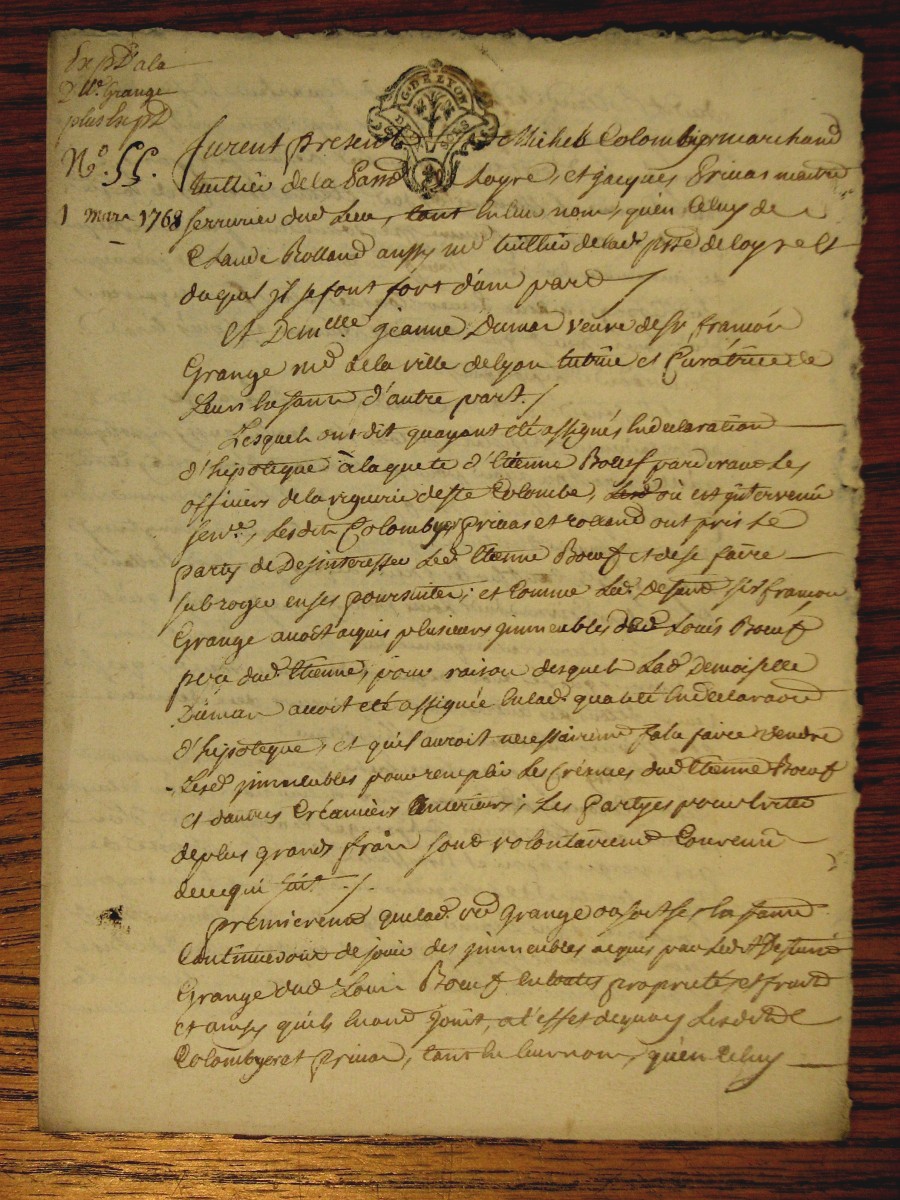 Exp.d a la
D.lle Grange
plus Exp.d
N.o 55.
1 mars 1768
G. DE LYON
DEUX SOLS
furent presents Michel Colombyer marchand
tuillier de la parr.e Loyre, et jacques Primas maitre
serrurier dud. Lieu, tant en leur nom, qu'en celuy de
Claude Rolland aussy m.d tuillier de lad. psse de Loyre et
duquel jl se font fort d'une part /
Et Dem.elle jeanne Dumas veuve de sr françois
Grange m.d de la ville de lyon tutrice et Curatrice de
Leurs Enfans d'autre part. /
Lesquels ont dit qu'ayant été assignés En declaration
d'hipoteque à la quete d'Etienne Boeuf pardevant Les
officiers de la viguerie de ste Colombe, où est jntervenu
sen.ce, Lesdits Colombyer Primas et rolland ont pris Le
party de Desinteresser Led. Etienne Boeuf et de se faire
subroger en ses poursuites; et comme Led. Defunt sr françois
Grange avoit acquis plusieurs jmmeubles de Louis Boeuf
pere dud. Etienne, pour raison desquels Lad. Demoiselle
Dumas avoit eté assignée en lad. qualité En declaration
d'hipoteque, et qu'il auroit necessairement falu faire vendre
Lesd. jmmeubles pour remplir Les Créances dud. Etienne Boeuf
et d'autres Créanciers anterieurs; Les Partyes pour Eviter
de plus grands frais sont volontairement Convenu
de ce qui suit. /.
premierement que lad. ve Grange ou soit ses Enfans
Continueront de jouir des jmmeubles acquis par Led. Sr Defunt
Grange dud. Louis Boeuf en toutes proprietés et fruits
et ainsy qu'ils En ont jouit, a l'effet de quoy Lesdits
Colombyer et Primas, tant En leur nom, qu'en Celuy